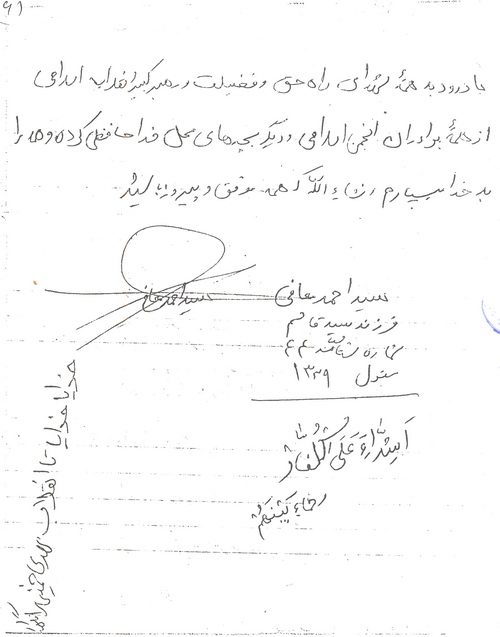 با درود به همهٔ شهدای راه حق و فضیلت و رهبر کبیر انقلاب اسلامی
از همهٔ برادران انجمن اسلامی و دیگر بچه‌های محل خداحافظی کرده و همه را
به خدا میسپارم انشاءالله که همه موفق و پیروز باشید
سید احمد معافی
سید احمد معافی
فرزند سید قاسم
شماره شناسنامه ۴۴
متولد ۱۳۳۹
اَشِدّاءُ عَلَی الکُفّارِ
رُحَماءُ بَینَهُم
خدایا خدایا تا انقلاب مهدی خمینی را نگهدار